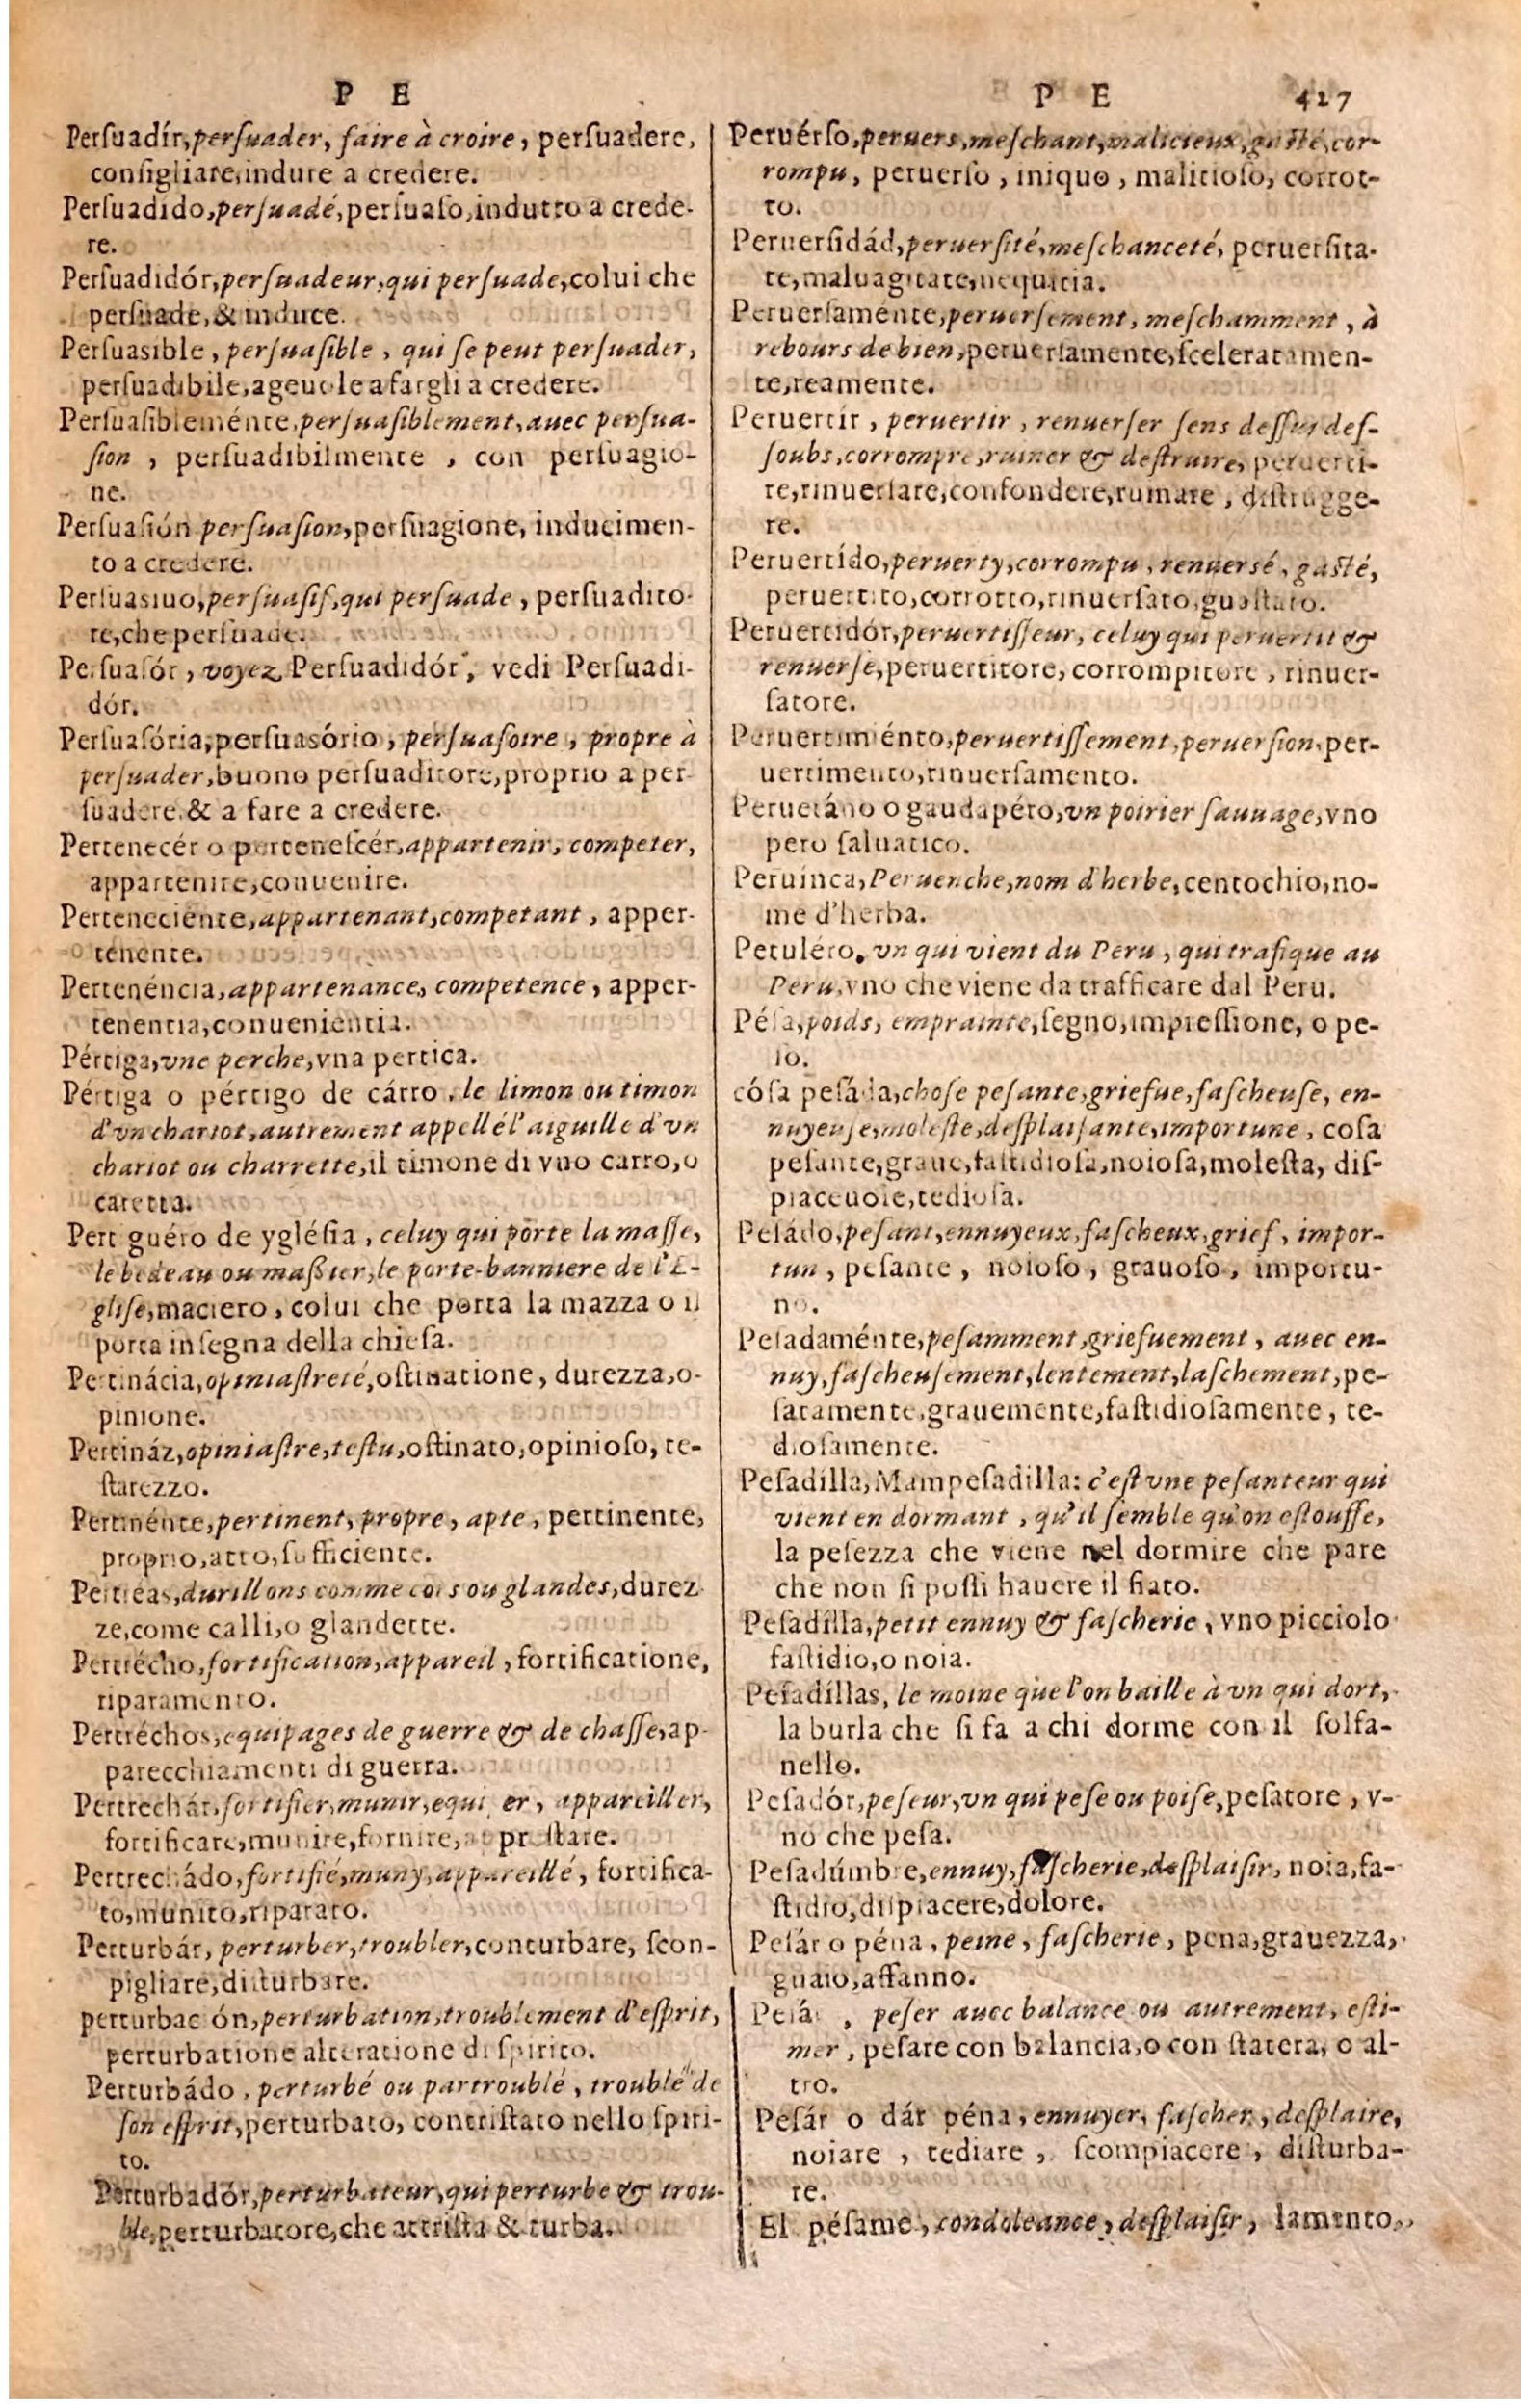 P E
Perſuadír, perſuader, faire à croire, perſuadere,
conſigliare, indure a credere.
Perſuadído, perſuadé, perſuaſo, indutto a crede-
re.
Perſuadidór, perſuadeur, qui perſuade, colui che
perſuade, & induce.
Perſuasíble, perſuaſible, qui ſe peut perſuader,
perſuadibile, ageuole a fargli a credere.
Perſuaſibleménte, perſuaſiblement, auec perſua-
ſion, perſuadibilmente, con perſuagio-
ne.
Perſuaſión perſuaſion, perſuagione, inducimen-
to a credere.
Perſuasíuo, perſuaſif, qui perſuade, perſuadito-
re, che perſuade.
Perſuaſór, voyez Perſuadidór, vedi Perſuadi-
dór.
Perſuaſória, perſuasório, perſuaſoire, propre à
perſuader, buono perſuaditore, proprio a per-
ſuadere & a fare a credere.
Pertenecér o perteneſcér, appartenir, competer,
appartenire, conuenire.
Perteneciénte, appartenant, competant, apper-
tenente.
Pertenéncia, appartenance, competence, apper-
tenentia, conuenientia.
Pértiga, vne perche, vna pertica.
Pértiga o pértigo de cárro, le limon ou timon
d'vn chariot, autrement appellé l'aiguille d'vn
chariot ou charrette, il timone di vno carro, o
caretta.
Pert guéro de ygléſia, celuy qui porte la maſſe,
le bedeau ou maßier, le porte-banniere de l'E-
gliſe, maciero, colui che porta la mazza o il
porta inſegna della chieſa.
Pertinácia, opiniaſtreté, oſtinatione, durezza, o-
pinione.
Pertináz, opiniaſtre, teſtu, oſtinato, opinioſo, te-
ſtarezzo.
Pertinénte, pertinent, propre, apte, pertinente,
proprio, atto, ſufficiente.
Pertréas, durillons comme cors ou glandes, durez-
ze, come calli, o glandette.
Pertrécho, fortification, appareil, fortificatione,
riparamento.
Pertréchos, equipages de guerre & de chaſſe, ap-
parecchiamenti di guerra.
Pertrechár, fortifier, munir, equi er, appareiller,
fortificare, munire, fornire, appreſtare.
Pertrechádo, fortifié, muny, appareillé, fortifica-
to, munito, riparato.
Perturbár, perturber, troubler, conturbare, ſcon-
pigliare, diſturbare.
perturbac ón, perturbation, troublement d'eſprit,
perturbatione alteratione di ſpirito.
Perturbádo, perturbé ou partroublé, troublé de
ſon eſprit, perturbato, contriſtato nello ſpiri-
to.
Perturbadór, perturbateur, qui perturbe & trou-
ble, perturbatore, che attriſta & turba.
P E 427
Peruérſo, peruers, meſchant, malicieux, gaſté, cor-
rompu, peruerſo, iniquo, malitioſo, corrot-
to.
Peruerſidád, peruerſité, meſchanceté, peruerſita-
te, maluagitate, nequitia.
Peruerſaménte, peruerſement, meſchamment, à
rebours de bien, peruerſamente, ſceleratamen-
te, reamente.
Peruertír, peruertir, renuerſer ſens deſſus deſ-
ſoubs, corrompre, ruiner & deſtruire, peruerti-
re, rinuerſare, confondere, ruinare, diſtrugge-
re.
Peruertído, peruerty, corrompu, renuersé, gaſté,
peruertito, corrotto, rinuerſato, guaſtato.
Peruertidór, peruertiſſeur, celuy qui peruertit &
renuerſe, peruertitore, corrompitore, rinuer-
ſatore.
Peruertimiénto, peruertiſſement, peruerſion, per-
uertimento, rinuerſamento.
Peruetáno o gaudapéro, vn poirier ſauuage, vno
pero ſaluatico.
Peruínca, Peruenche, nom d'herbe, centochio, no-
me d'herba.
Peruléro, vn qui vient du Peru, qui trafique au
Peru, vno che viene da trafficare dal Peru.
Péſa, poids, emprainte, ſegno, impreſſione, o pe-
ſo.
cóſa peſáda, choſe peſante, griefue, faſcheuſe, en-
nuyeuſe, moleſte, deſplaiſante, importune, coſa
peſante, graue, faſtidioſa, noioſa, moleſta, diſ-
piaceuole, tedioſa.
Peſádo, peſant, ennuyeux, faſcheux, grief, impor-
tun, peſante, noioſo, grauoſo, importu-
no.
Peſadaménte, peſamment, griefuement, auec en-
nuy, faſcheuſement, lentement, laſchement, pe-
ſatamente, grauemente, faſtidioſamente, te-
dioſamente.
Peſadílla, Mampeſadílla: c'eſt vne peſanteur qui
vient en dormant, qu'il ſemble qu'on eſtouffe,
la peſezza che viene nel dormire che pare
che non ſi poſſi hauere il fiato.
Peſadílla, petit ennuy & faſcherie, vno picciolo
faſtidio, o noia.
Peſadíllas, le moine que l'on baille à vn qui dort,
la burla che ſi fa a chi dorme con il ſolfa-
nello.
Peſadór, peſeur, vn qui peſe ou poiſe, peſatore, v-
no che peſa.
Peſadúmbre, ennuy, faſcherie, deſplaiſir, noia, fa-
ſtidio, diſpiacere, dolore.
Peſár o péna, peine, faſcherie, pena, grauezza,
guaio, affanno.
Peſá , peſer auec balance ou autrement, eſti-
mer, peſare con balancia, o con ſtatera, o al-
tro.
Peſár o dár péna, ennuyer, faſcher, deſplaire,
noiare, tediare, ſcompiacere, diſturba-
re.
El péſame, condoleance, deſplaiſir, lamento,